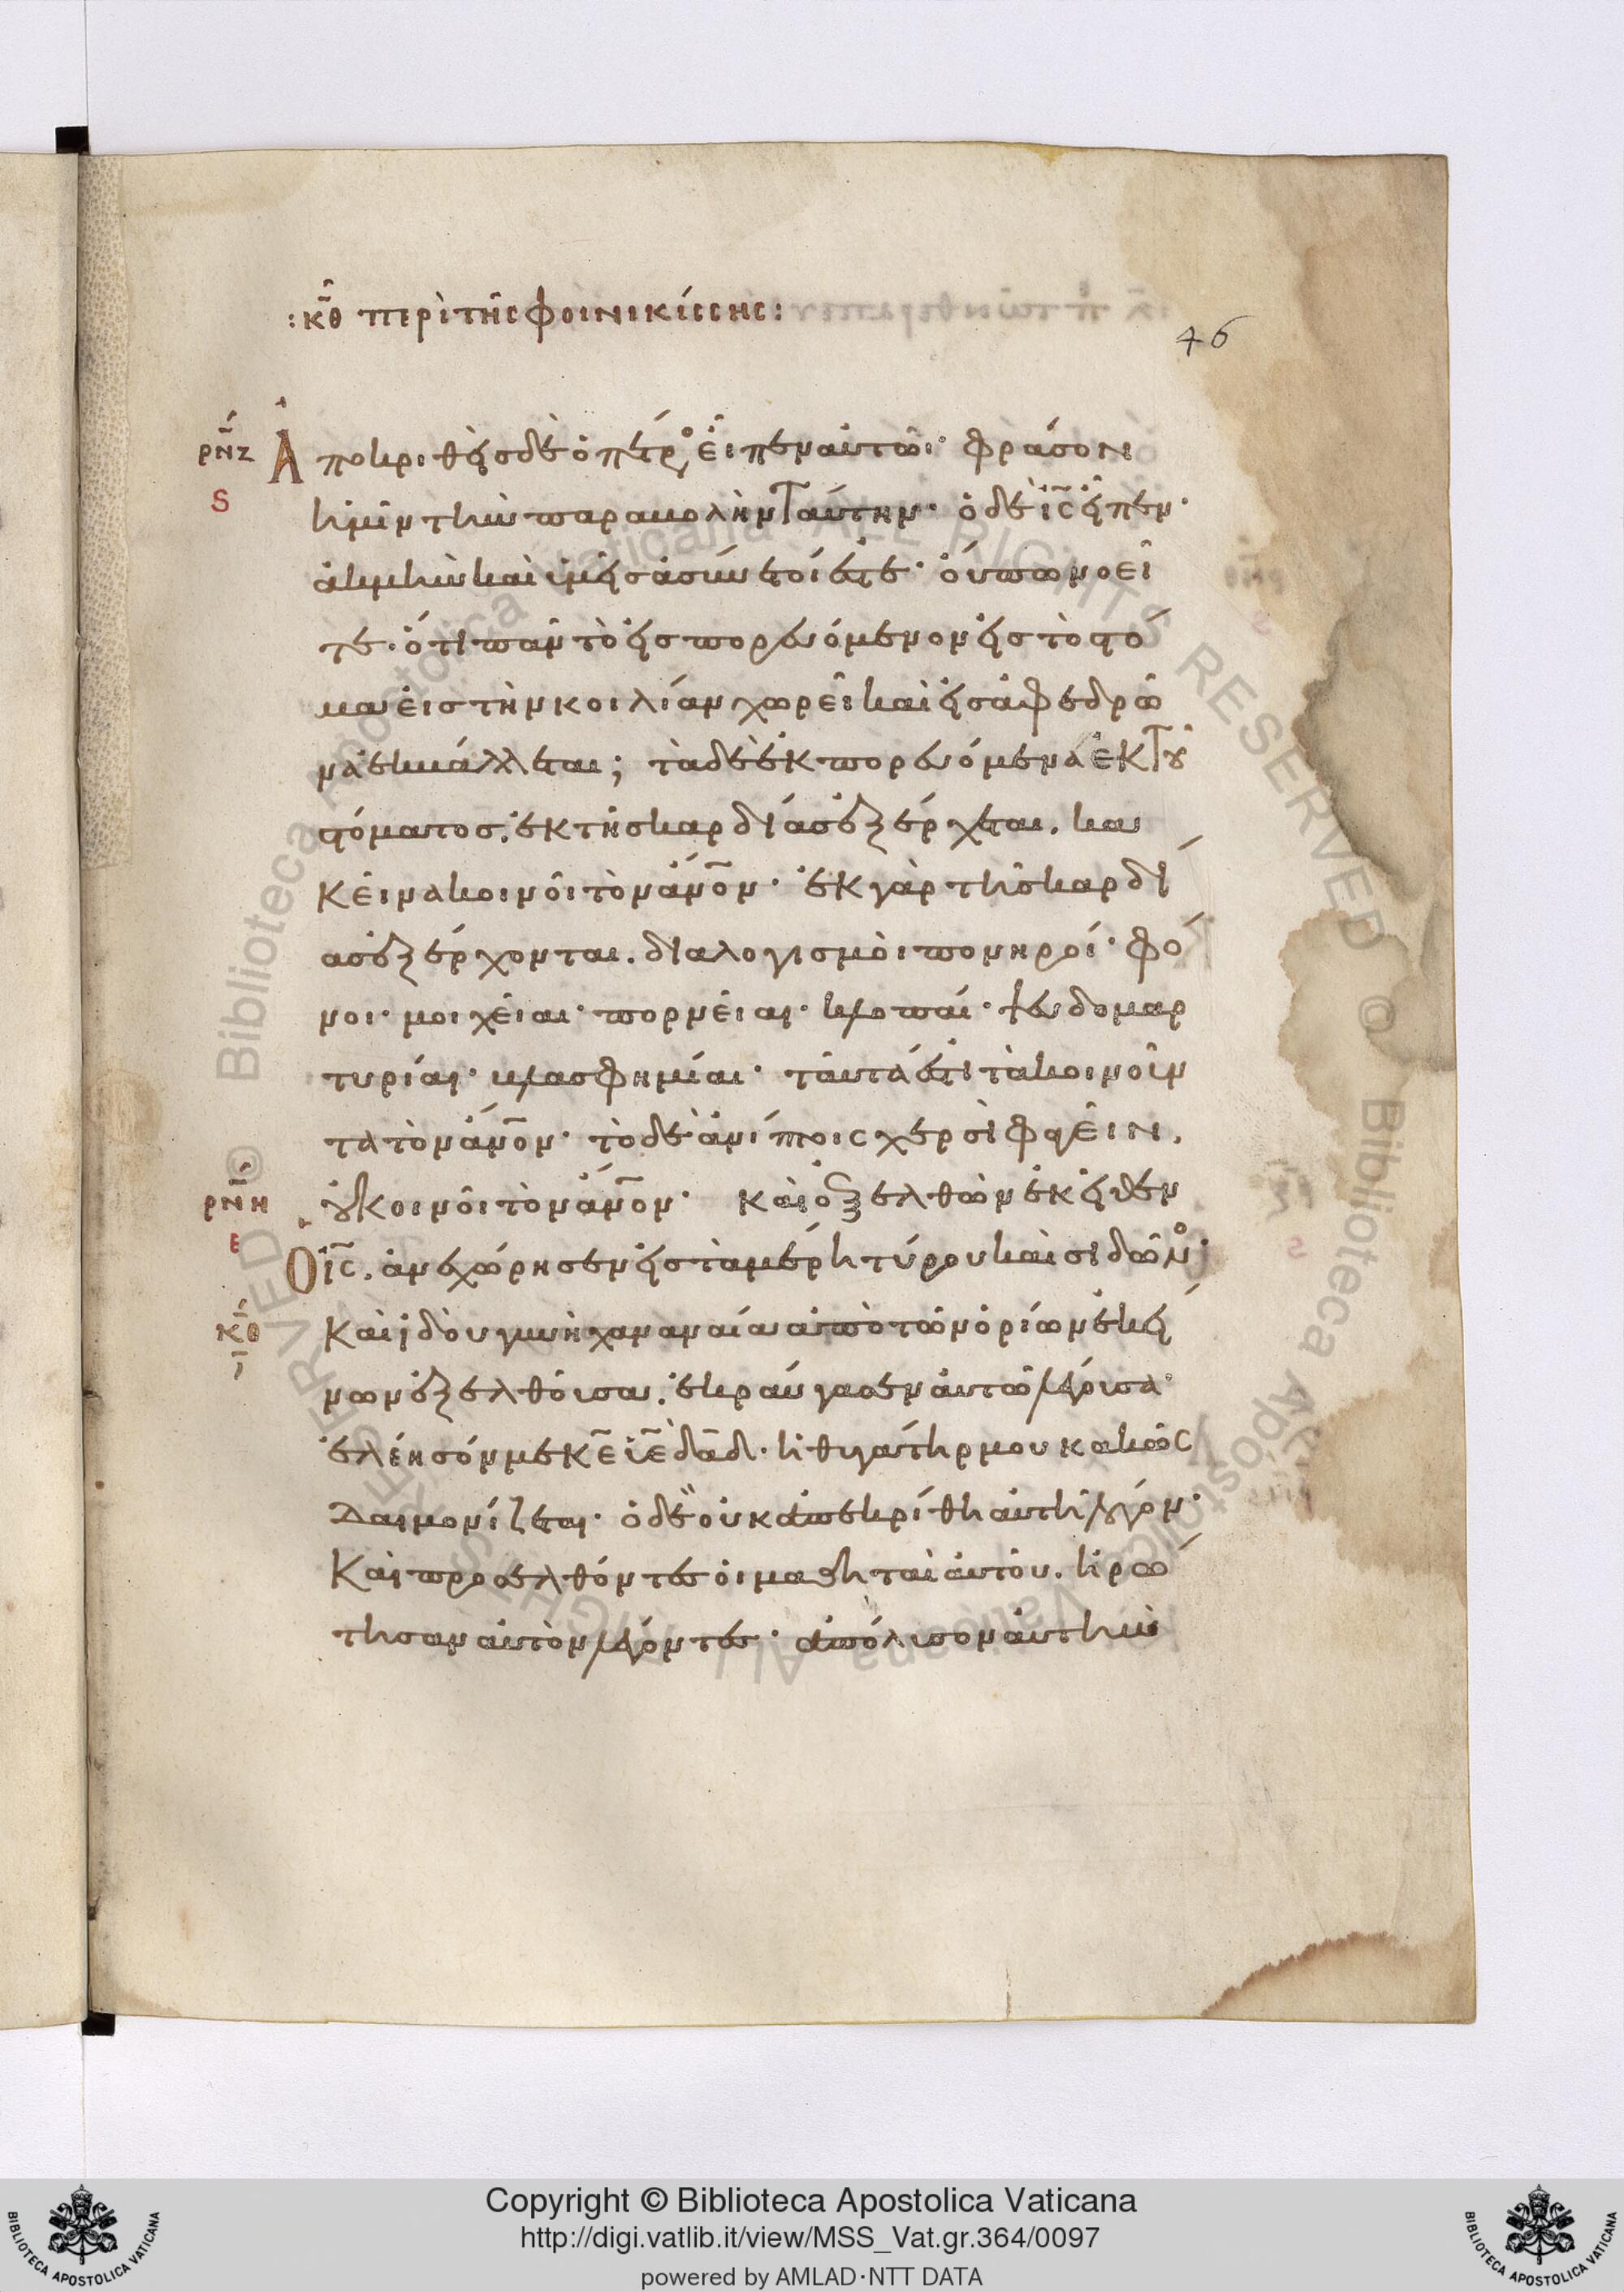 :κθ περὶ τῆς φοινικίσσης:
46
ρνζ Ἀποκριθεὶς δὲ ὁ πέτρος, εἶπεν αὐτῶι· φράσον
ς
ἡμῖν τὴν παραβολὴν ταύτην· ὁ δὲ ις εἶπεν·
ἀκμὴν καὶ ὑμεῖς ἀσύνετοί ἐστε· οὔπω νοεῖ
τε· ὅτι πᾶν τὸ εἰσπορευόμενον εἰς τὸ στό
μα εἰς τὴν κοιλίαν χωρεῖ καὶ εἰς ἀφεδρῶ
να ἐκβάλλεται; τὰ δὲ ἐκπορευόμενα ἐκ τοῦ
στόματος. ἐκ τῆς καρδίας ἐξέρχεται. κα
κεῖνα κοινοῖ τὸν ἄνον· ἐκ γὰρ τῆς καρδί
ας ἐξέρχονται. διαλογισμοὶ πονηροί· φό
νοι· μοιχεῖαι· πορνεῖαι· κλοπαί· ψευδομαρ
τυρίαι· βλασφημίαι· ταῦτά ἐστι τὰ κοινοῦν
τα τὸν ἄνον· τὸ δὲ ἀνίπτοις χερσὶ φαγεῖν,
ρνη οὐ κοινοῖ τὸν ἄνον· καὶ ἐξελθὼν ἐκεῖθεν
ε
Ὁ ις. ἀνεχώρησεν εἰς τὰ μέρη τύρου καὶ σιδῶνος·
κθ Καὶ ἰδοὺ γυνὴ χαναναία ἀπὸ τῶν ὁρίων ἐκεί
νων ἐξελθοῦσα. ἐκραύγασεν αὐτῶ λέγουσα·
ἐλέησόν με κε ιε δαδ· ἡ θυγάτηρ μου κακῶς
Δαιμονίζεται· ὁ δὲ οὐκ ἀπεκρίθη αὐτῆ λόγον·
Καὶ προσελθόντες οἱ μαθηταὶ αὐτοῦ. ἠρώ
τησαν αὐτὸν λέγοντες· ἀπόλυσον αὐτὴν
Copyright © Biblioteca Apostolica Vaticana
http://digi.vatlib.it/view/MSS_Vat.gr.364/0097
powered by AMLAD·NTT DATA
BIBLIOTECA APOSTOLICA VATICANA
BIBLIOTECA APOSTOLICA VATICANA